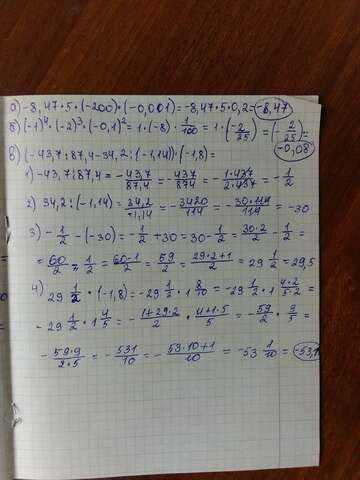 а) -8,47·5·(-200)·(-0,001)=-8,47·5·0,2=-8,47
б) (-1)⁴·(-2)³·(-0,1)²=1·(-8)·1/100=1·(-2/25)=(-2/25)=
-0,08
в) (-43,7:87,4-34,2:(-1,14))·(-1,8)=
1) -43,7:87,4=-43,7/87,4=-437/874=-1·437/2·437=-1/2
2) 34,2:(-1,14)=34,2/-1,14=-3420/114=-30·114/114=-30
3) -1/2-(-30)=-1/2+30=30-1/2=30·2/2-1/2=
=60/2-1/2=60-1/2=59/2=29·2+1/2=29 1/2=29,5
4) 29 1/2·(-1,8)=-29 1/2·1 8/10=-29 1/2·1 4·2/5·2=
-29 1/2·1 4/5=-1+29·2/2·4+1·5/5=-59/2·9/5=
-59·9/2·5=-531/10=-53·10+1/10=-53 1/10=-53,1